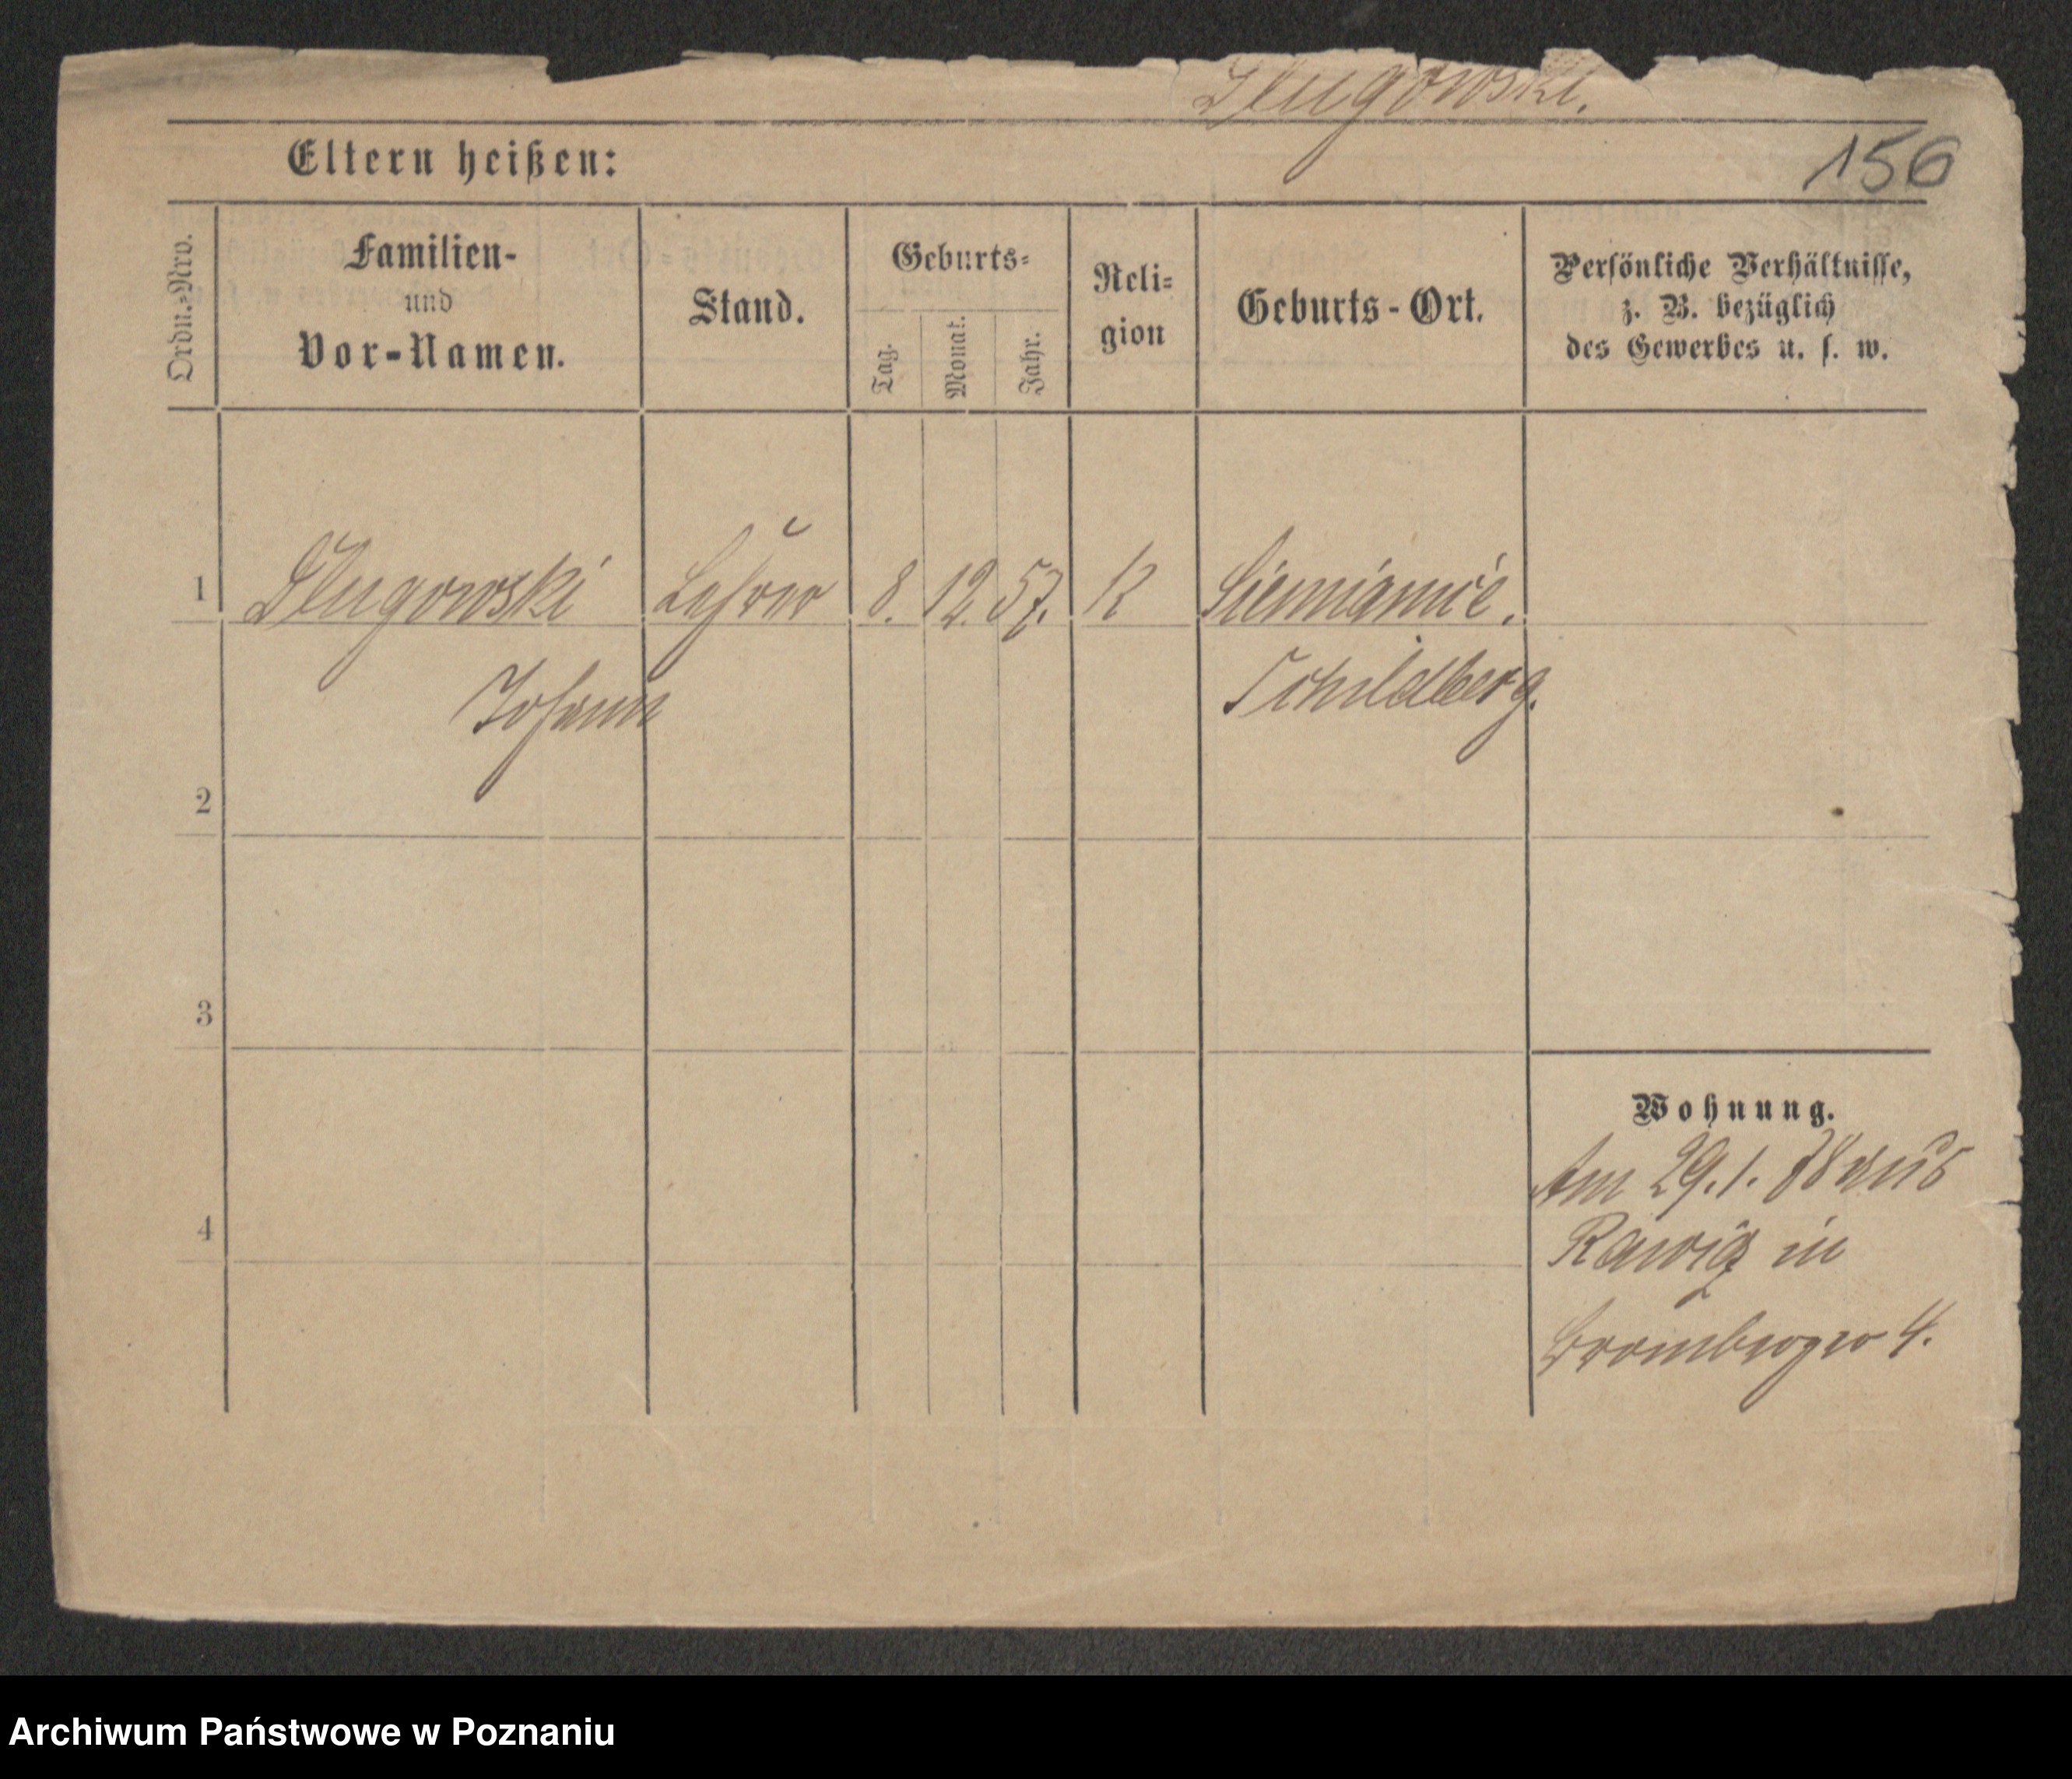 Dlugowski.
156
Eltern heißen:
Ordn.-Nro.
Familien-
und
Vor-Namen.
Stand.
Geburts-
Tag.
Monat.
Jahr.
Reli-
gion
Geburts-Ort.
Persönliche Verhältnisse,
z. B. bezüglich
des Gewerbes u. s. w.
1 Dlugowski Lehrer 8. 12. 57. K Siemianice.
Johann Schildberg.
2
3
Wohnung.
Am 29.1.78 aus
4
Rawicz in
Bromberger 4.
Archiwum Państwowe w Poznaniu